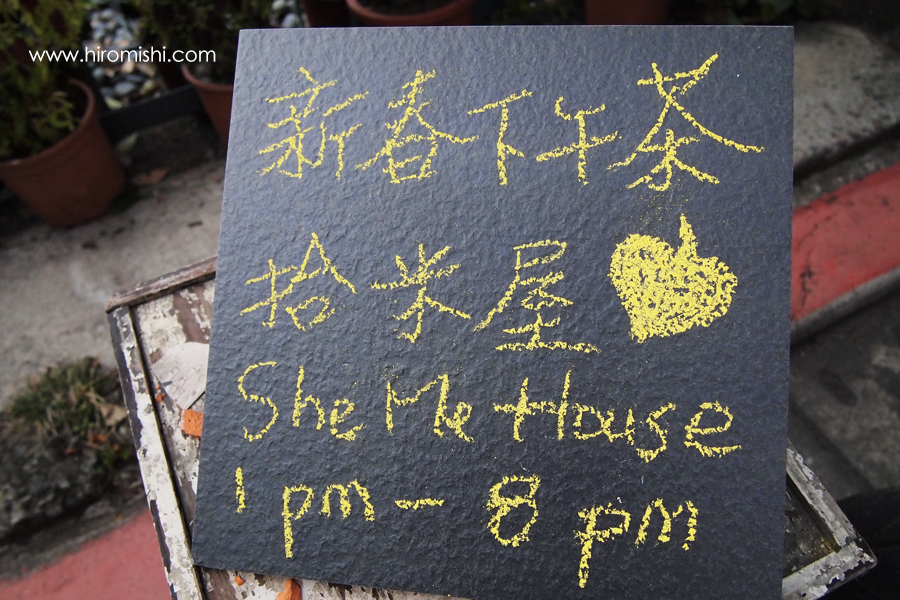 www.hiromishi.com
新春下午茶
拾米屋
She Me House
1pm-8pm